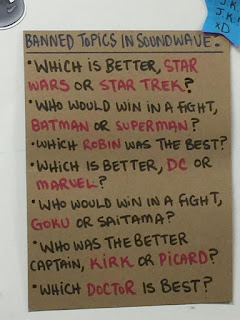 J.K.
J.K.
xD
BANNED TOPICS IN SOUNDWAVE-
• WHICH IS BETTER, STAR
WARS OR STAR TREK?
• WHO WOULD WIN IN A FIGHT,
BATMAN OR SUPERMAN?
• WHICH ROBIN WAS THE BEST?
• WHICH IS BETTER, DC OR
MARVEL?
• WHO WOULD WIN IN A FIGHT,
GOKU OR SAITAMA?
• WHO WAS THE BETTER
CAPTAIN, KIRK OR PICARD?
• WHICH DOCTOR IS BEST?